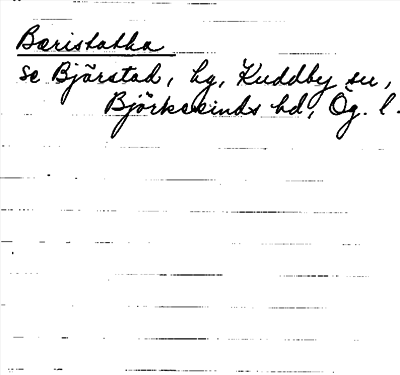 Bæristatha
se Bjärstad, hg, Kuddby sn,
Björkekinds hd, Ög. l.